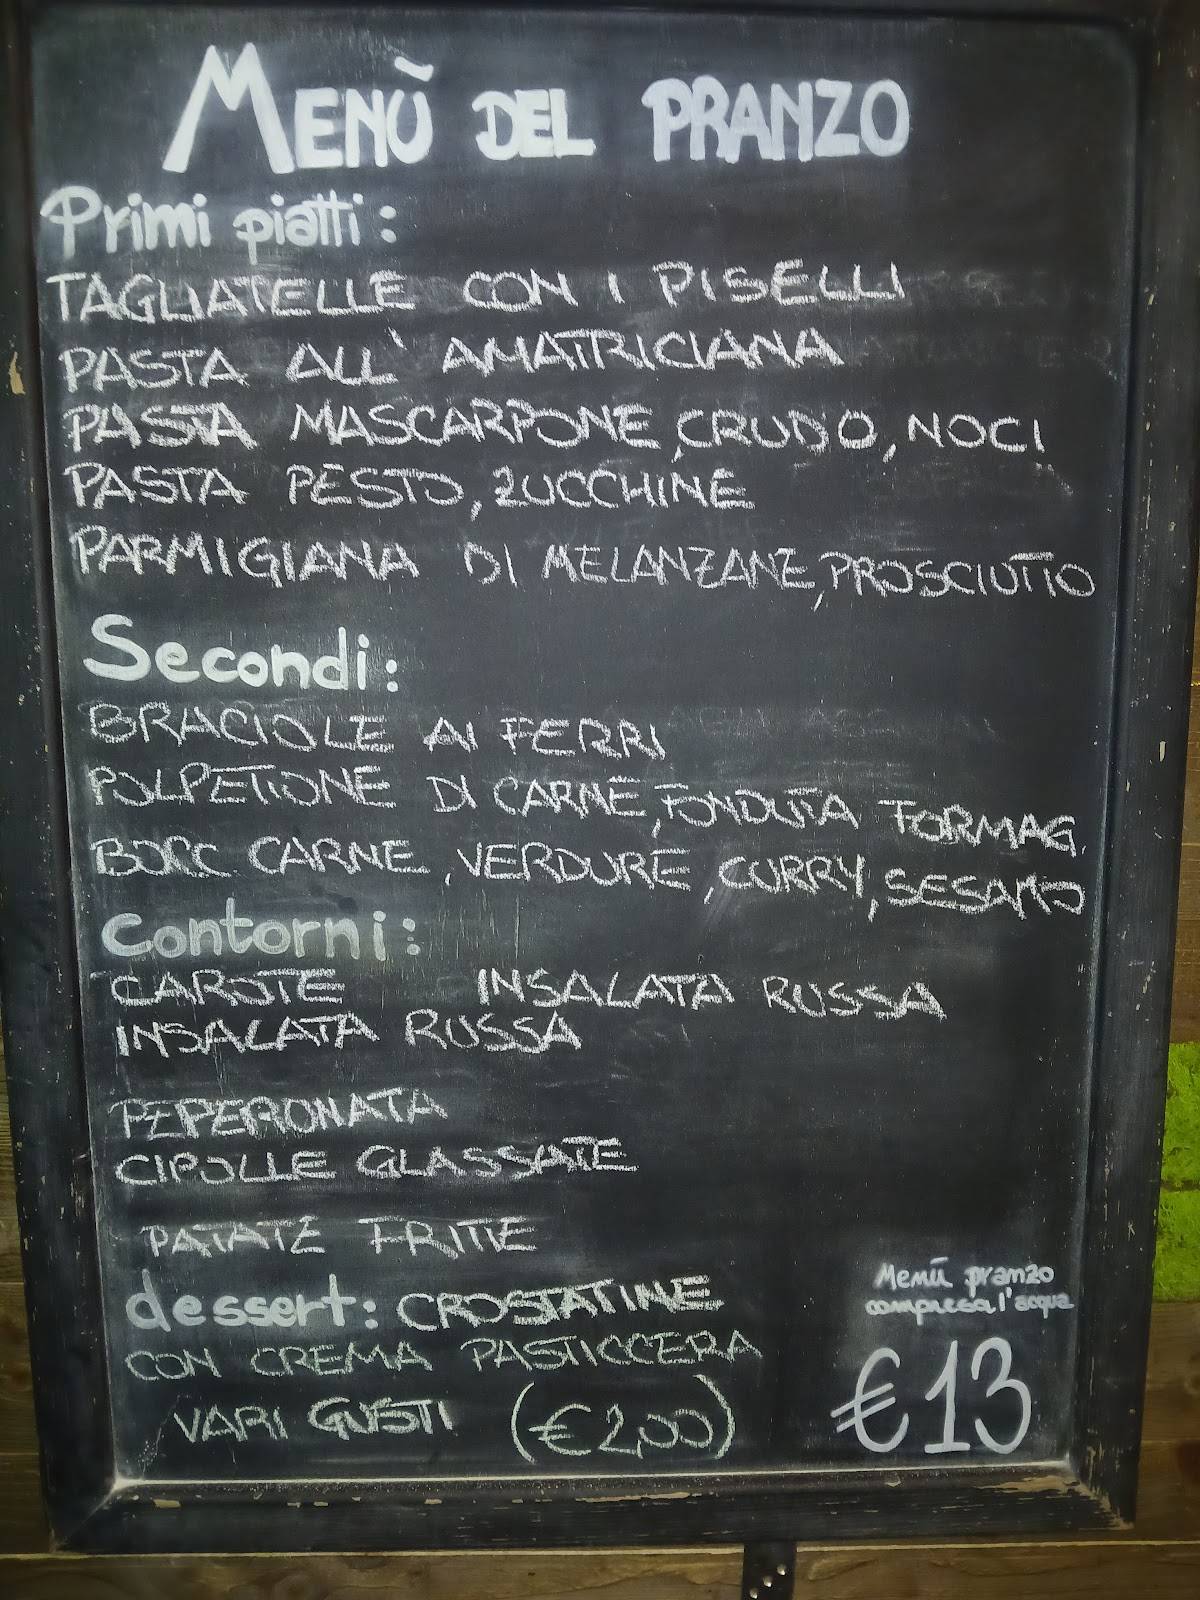 MENÙ DEL PRANZO
Primi piatti:
TAGLIATELLE CON I PISELLI
PASTA ALL' AMATRICIANA
PASTA MASCARPONE, CRUDO, NOCI
PASTA PESTO, ZUCCHINE
PARMIGIANA DI MELANZANE, PROSCIUTTO
Secondi:
BRACIOLE AI FERRI
POLPETTONE DI CARNE, FONDUTA FORMAG.
BOCC CARNE, VERDURE, CURRY, SESAMO
Contorni:
CAROTE INSALATA RUSSA
INSALATA RUSSA
PEPERONATA
CIPOLLE GLASSATE
PATATE FRITTE
dessert: CROSTATINE
CON CREMA PASTICCERA
VARI GUSTI (€2,00)
Menù pranzo
compresa l'acqua
€13